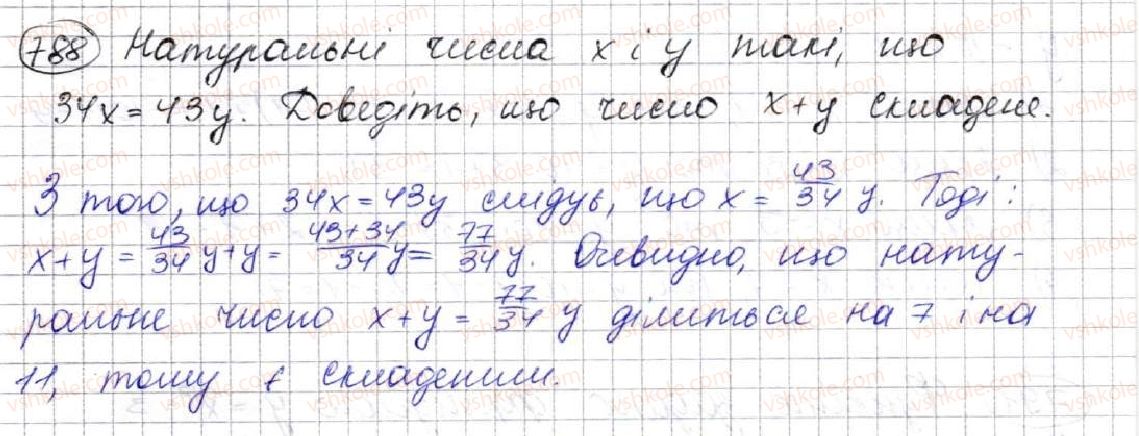 788 Натуральні числа x і y такі, що
34x = 43y. Доведіть, що число x+y складене.
З того, що 34x = 43y слідує, що x = 43/34 y. Тоді:
x+y = 43/34 y+y = 43+34/34 y = 77/34 y. Очевидно, що нату-
ральне число x+y = 77/34 y ділиться на 7 і на
11, тому є складеним.